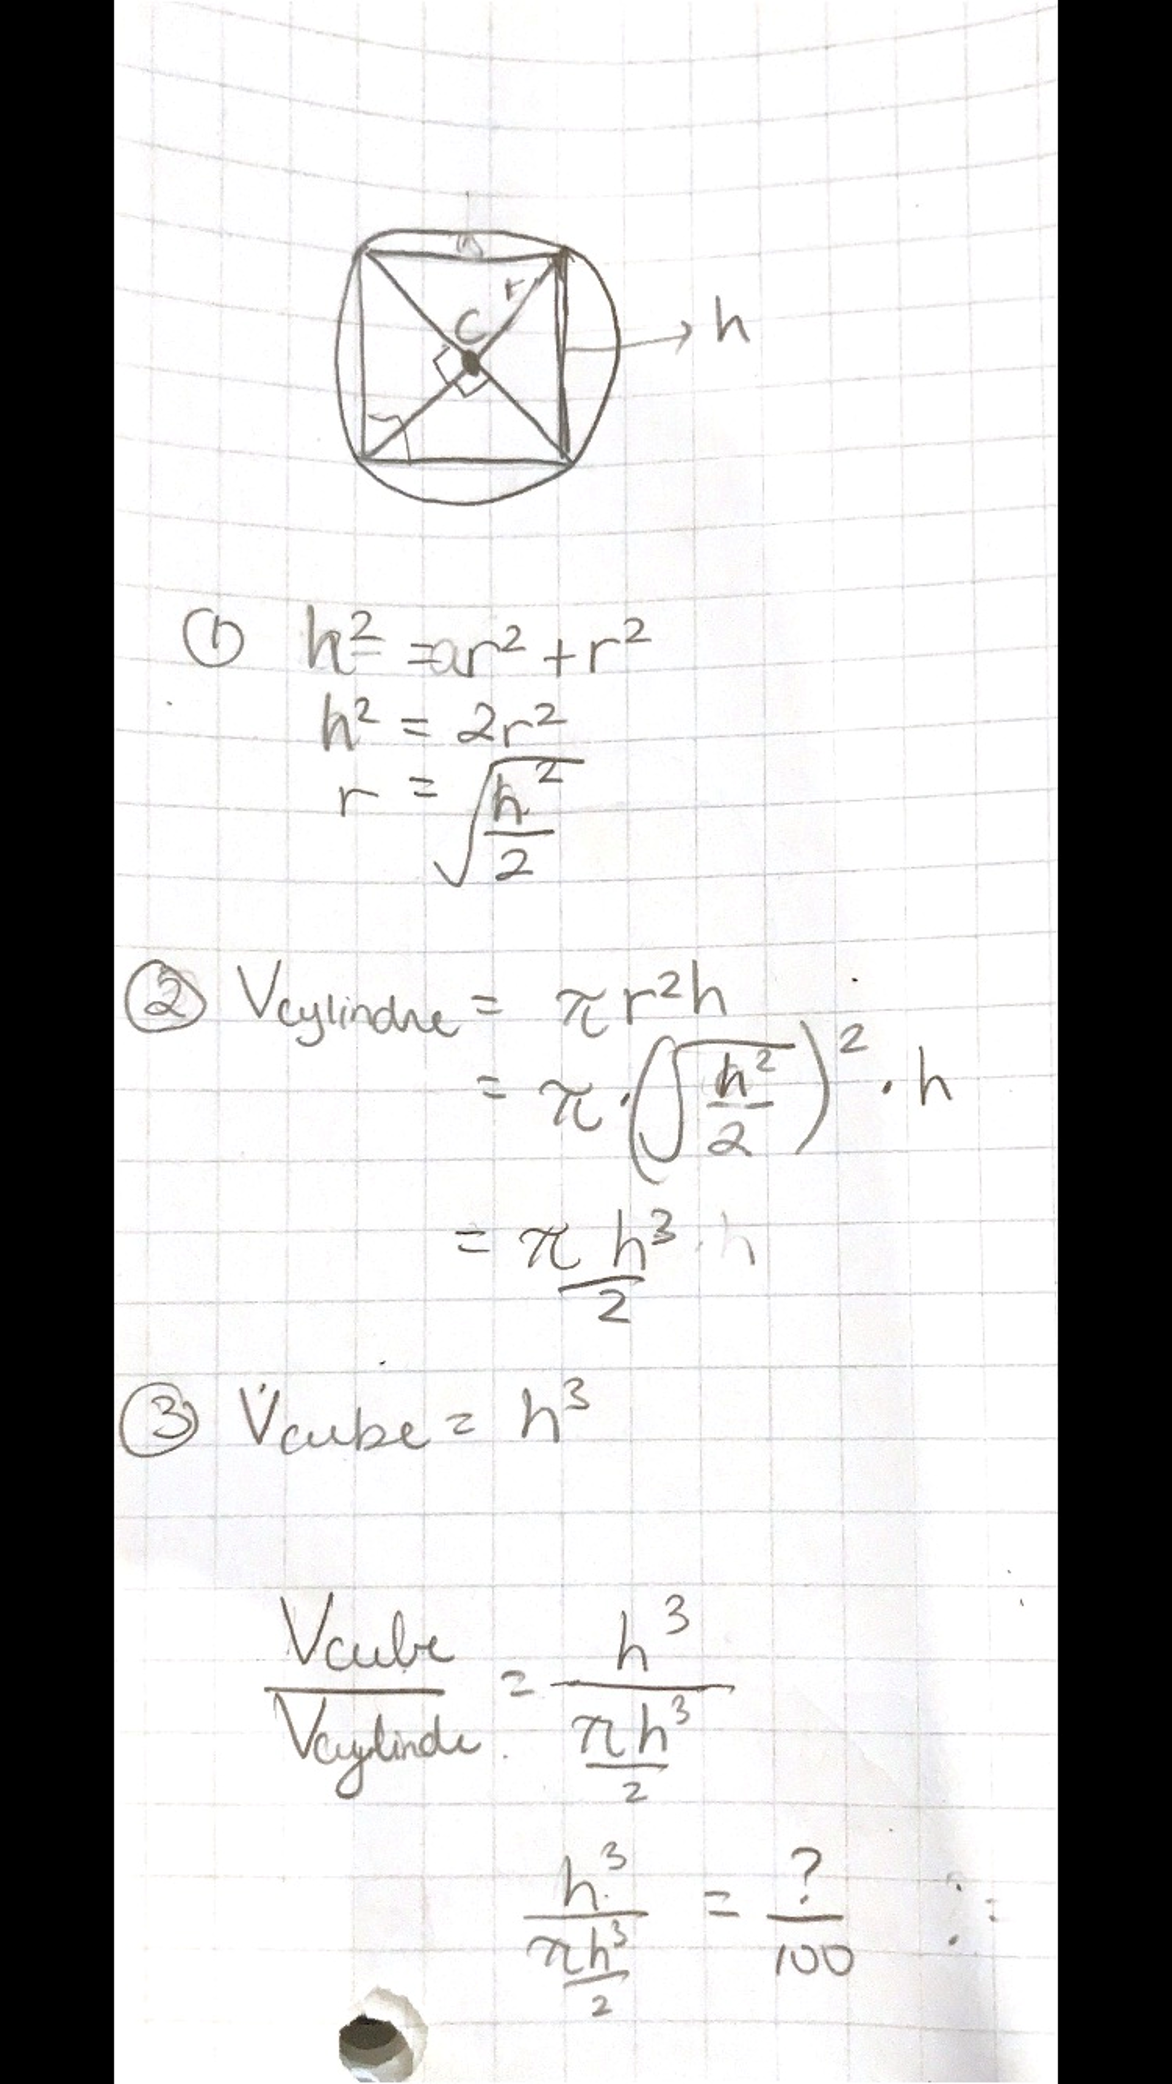 r
C
→ h
① h² = ar² + r²
h² = 2r²
r = √(h²/2)
② Vcylindre = πr²h
= π·(√(h²/2))²·h
= πh³/2 · h
③ Vcube = h³
Vcube/Vcylindre = h³/(πh³/2)
h³/(πh³/2) = ?/100